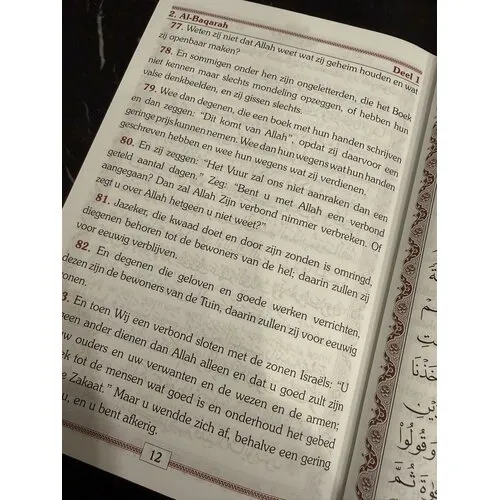 2. Al-Baqarah
Deel 1
77. Weten zij niet dat Allah weet wat zij geheim houden en wat
zij openbaar maken?
78. En sommigen onder hen zijn ongeletterden, die het Boek
niet kennen maar slechts mondeling opzeggen, of hebben hun
valse denkbeelden, en zij gissen slechts.
79. Wee dan degenen, die een boek met hun handen schrijven
en dan zeggen: “Dit komt van Allah”, opdat zij daarvoor een
geringe prijs kunnen nemen. Wee dan hun wegens wat hun handen
geschreven hebben en wee hun wegens wat zij verdienen.
80. En zij zeggen: “Het Vuur zal ons niet aanraken dan een
geteld aantal dagen.” Zeg: “Bent u met Allah een verbond
aangegaan? Dan zal Allah Zijn verbond nimmer verbreken. Of
zegt u over Allah hetgeen u niet weet?”
81. Jazeker, die kwaad doet en door zijn zonden is omringd,
diegenen behoren tot de bewoners van de hel; daarin zullen zij
voor eeuwig verblijven.
82. En degenen die geloven en goede werken verrichten,
dezen zijn de bewoners van de Tuin, daarin zullen zij voor eeuwig
wonen.
3. En toen Wij een verbond sloten met de zonen Israëls: “U
geen ander dienen dan Allah alleen en dat u goed zult zijn
uw ouders en uw verwanten en de wezen en de armen;
ek tot de mensen wat goed is en onderhoud het gebed
e Zakaat.” Maar u wendde zich af, behalve een gering
u, en u bent afkerig.
12